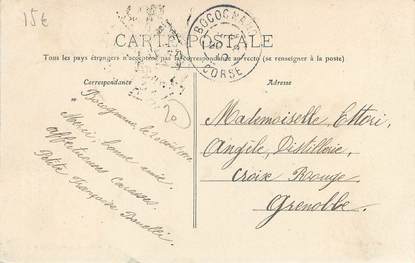 15€
CARTE POSTALE
BOCOGNANO
CORSE
Tous les pays étrangers n'acceptent pas la correspondance au recto (se renseigner à la poste)
Correspondance
Adresse
20
Bocognano, le 2 août
Merci, bonne amie.
Affectueuses Caresses.
Petite Françoise
Mademoiselle Ettori,
Angèle, Distillerie,
Croix Rouge,
Grenoble.